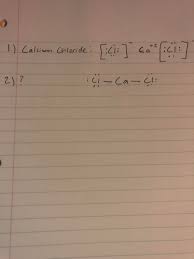 1) Calcium Chloride: [:Cl:]⁻ Ca⁺² [:Cl:]⁻
2) ? :Cl — Ca — Cl: